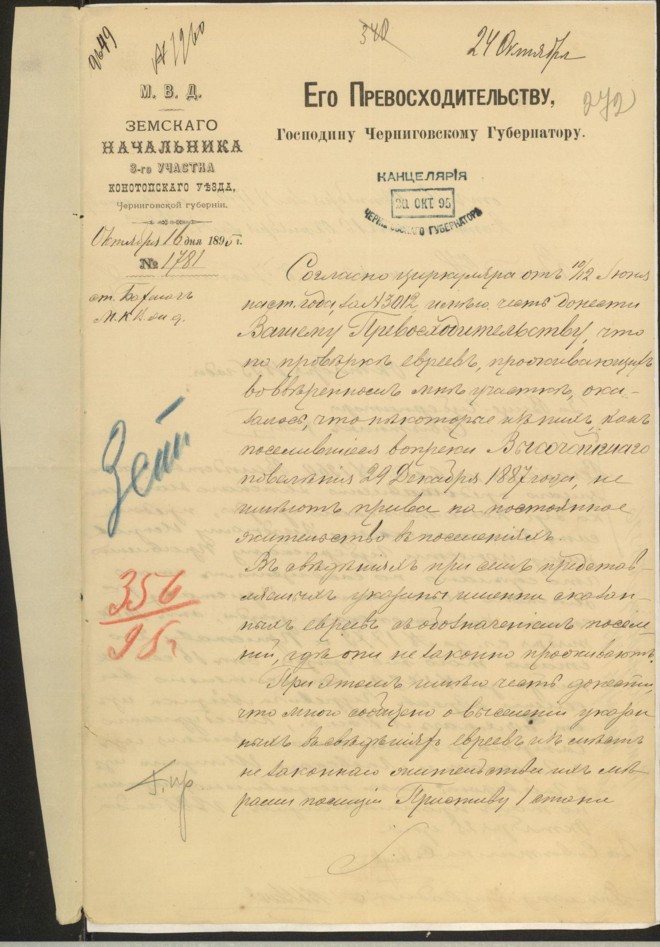 9649
№ 1260
340
24 Октября
272
М. В. Д.
ЗЕМСКАГО
НАЧАЛЬНИКА
3-го УЧАСТКА
КОНОТОПСКАГО УѢЗДА,
Черниговской губерніи.
Октября 16 дня 1895 г.
№ 1781
ст. Бахмачъ
Его Превосходительству,
Господину Черниговскому Губернатору.
КАНЦЕЛЯРІЯ
20 ОКТ 95
ЧЕРНИГОВСКАГО ГУБЕРНАТОРА
Согласно циркуляра отъ 10/12 Іюня
наст. года, за № 3012, имѣю честь донести
Вашему Превосходительству, что
по провѣркѣ евреевъ, проживающихъ
во ввѣренномъ мнѣ участкѣ, ока-
залось, что нѣкоторые изъ нихъ, какъ
поселившіеся вопреки Высочайшаго
повелѣнія 29 Декабря 1887 года, не
имѣютъ права на постоянное
жительство въ поселеніяхъ.
Въ свѣдѣніяхъ при семъ представ-
ляемыхъ указаны имена сказан-
ныхъ евреевъ съ обозначеніемъ поселе-
ній, гдѣ они незаконно проживаютъ.
При этомъ имѣю честь донести,
что мною сообщено о выселеніи указан-
ныхъ въ свѣдѣніяхъ евреевъ изъ мѣстъ
незаконнаго жительства ихъ мѣ-
рами полиціи Приставу 1 стана
356
95 г.